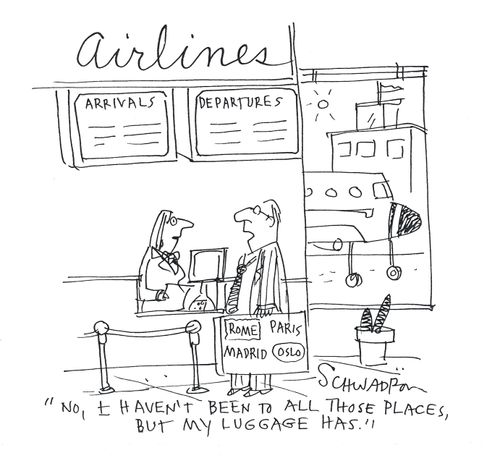 airlines
ARRIVALS
DEPARTURES
ROME PARIS
MADRID OSLO
SCHWADRON
"NO, I HAVEN'T BEEN TO ALL THOSE PLACES,
BUT MY LUGGAGE HAS."